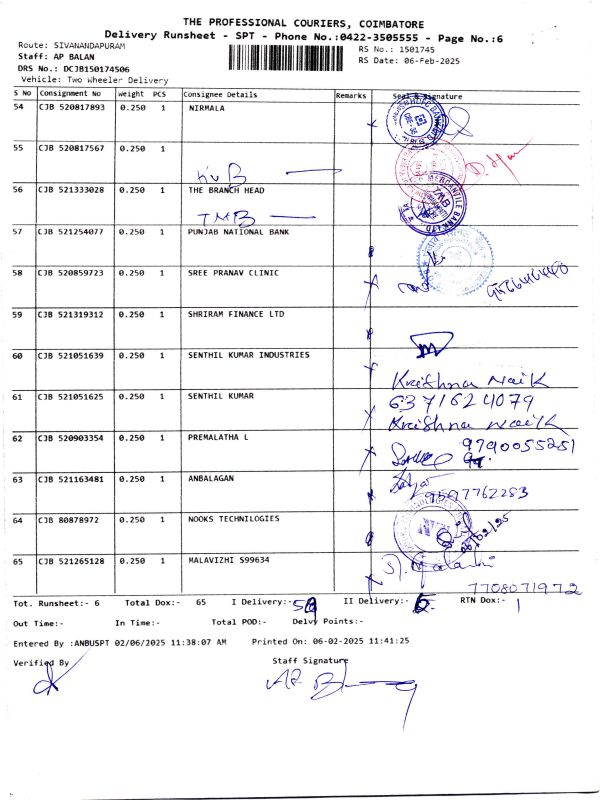 THE PROFESSIONAL COURIERS, COIMBATORE
Delivery Runsheet - SPT - Phone No.:0422-3505555 - Page No.:6
Route: SIVANANDAPURAM
Staff: AP BALAN
DRS No.: DCJB150174506
Vehicle: Two Wheeler Delivery
RS No.: 1501745
RS Date: 06-Feb-2025
S No Consignment No weight PCS Consignee Details Remarks Seal & Signature
54 CJB 520817893 0.250 1 NIRMALA
55 CJB 520817567 0.250 1
KVB
56 CJB 521333028 0.250 1 THE BRANCH HEAD
TMB
57 CJB 521254077 0.250 1 PUNJAB NATIONAL BANK
58 CJB 520859723 0.250 1 SREE PRANAV CLINIC
59 CJB 521319312 0.250 1 SHRIRAM FINANCE LTD
60 CJB 521051639 0.250 1 SENTHIL KUMAR INDUSTRIES
Kraishna Naik
61 CJB 521051625 0.250 1 SENTHIL KUMAR
6371624079
Kraishna Naik
62 CJB 520903354 0.250 1 PREMALATHA L
9790055251
63 CJB 521163481 0.250 1 ANBALAGAN
9597762253
64 CJB 80878972 0.250 1 NOOKS TECHNILOGIES
65 CJB 521265128 0.250 1 MALAVIZHI S99634
7708071972
Tot. Runsheet:- 6 Total Dox:- 65 I Delivery:- II Delivery:- RTN Dox:- 1
Out Time:- In Time:- Total POD:- Delvy Points:-
Entered By :ANBUSPT 02/06/2025 11:38:07 AM Printed On: 06-02-2025 11:41:25
Verified By Staff Signature